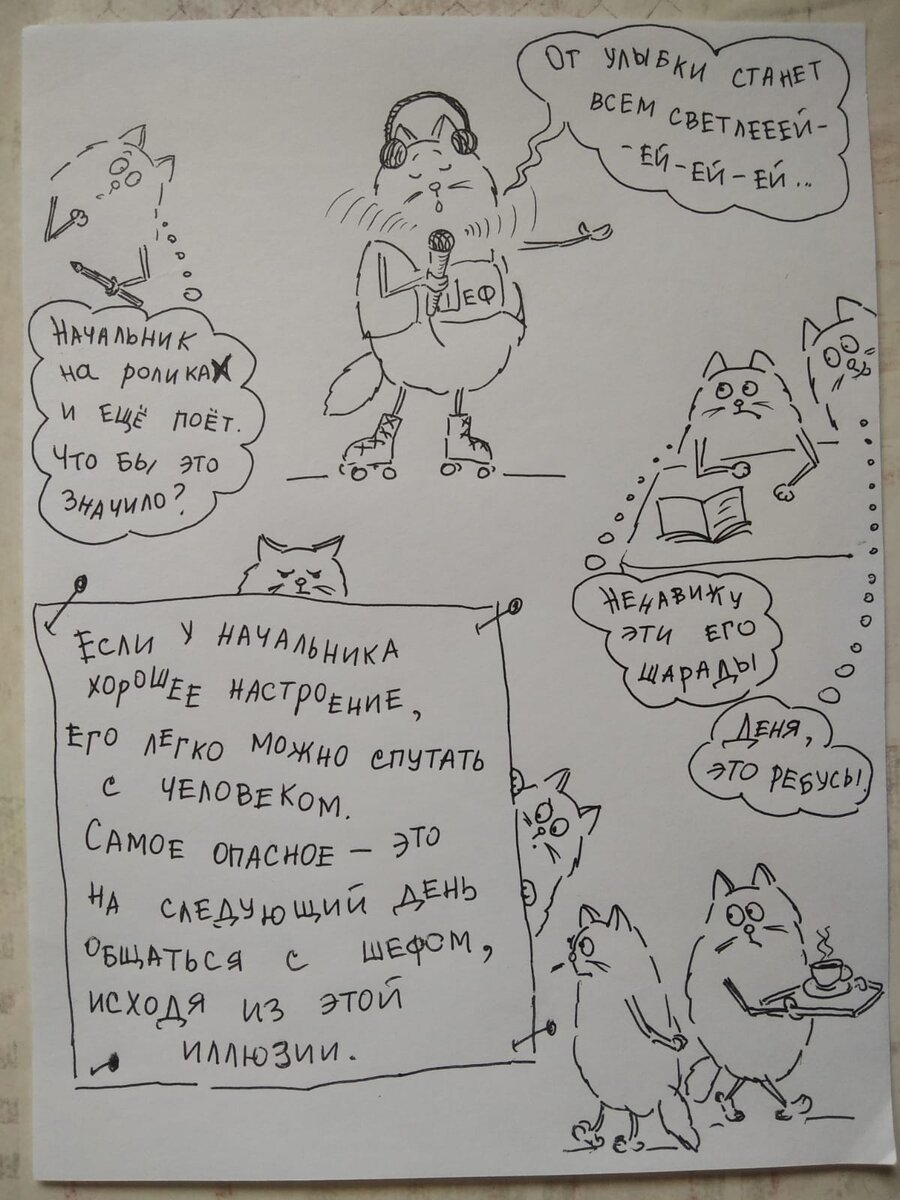 От улыбки станет
всем светлееей-
-ей-ей-ей...
Шеф
Начальник
на роликах
и ещё поёт.
Что бы это
значило?
Ненавижу
эти его
шарады
Деня,
это ребусы.
Если у начальника
хорошее настроение,
его легко можно спутать
с человеком.
Самое опасное — это
на следующий день
общаться с шефом,
исходя из этой
иллюзии.